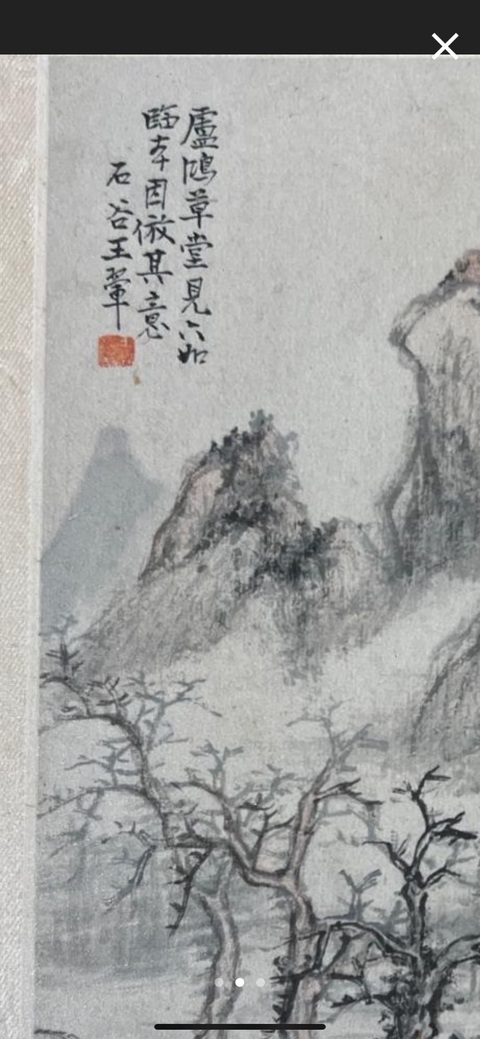 盧鴻草堂見六如
臨本因倣其意
石谷王翬